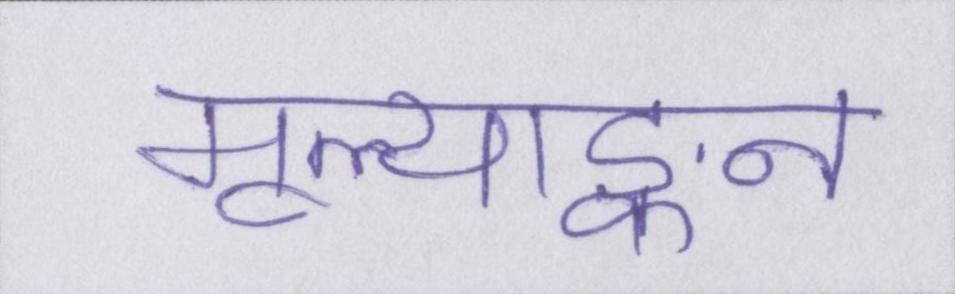 मूल्याङ्कन